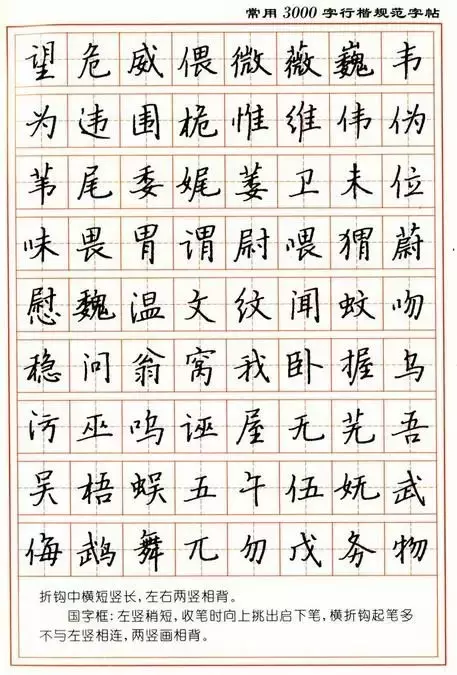 常用3000字行楷规范字帖
望危威偎微薇巍韦
为违围桅惟维伟伪
苇尾委娓萎卫未位
味畏胃谓尉喂猬蔚
慰魏温文纹闻蚊吻
稳问翁窝我卧握乌
污巫呜诬屋无芜吾
吴梧蜈五午伍妩武
侮鹉舞兀勿戊务物
折钩中横短竖长，左右两竖相背。
国字框：左竖稍短，收笔时向上挑出启下笔，横折钩起笔多
不与左竖相连，两竖画相背。